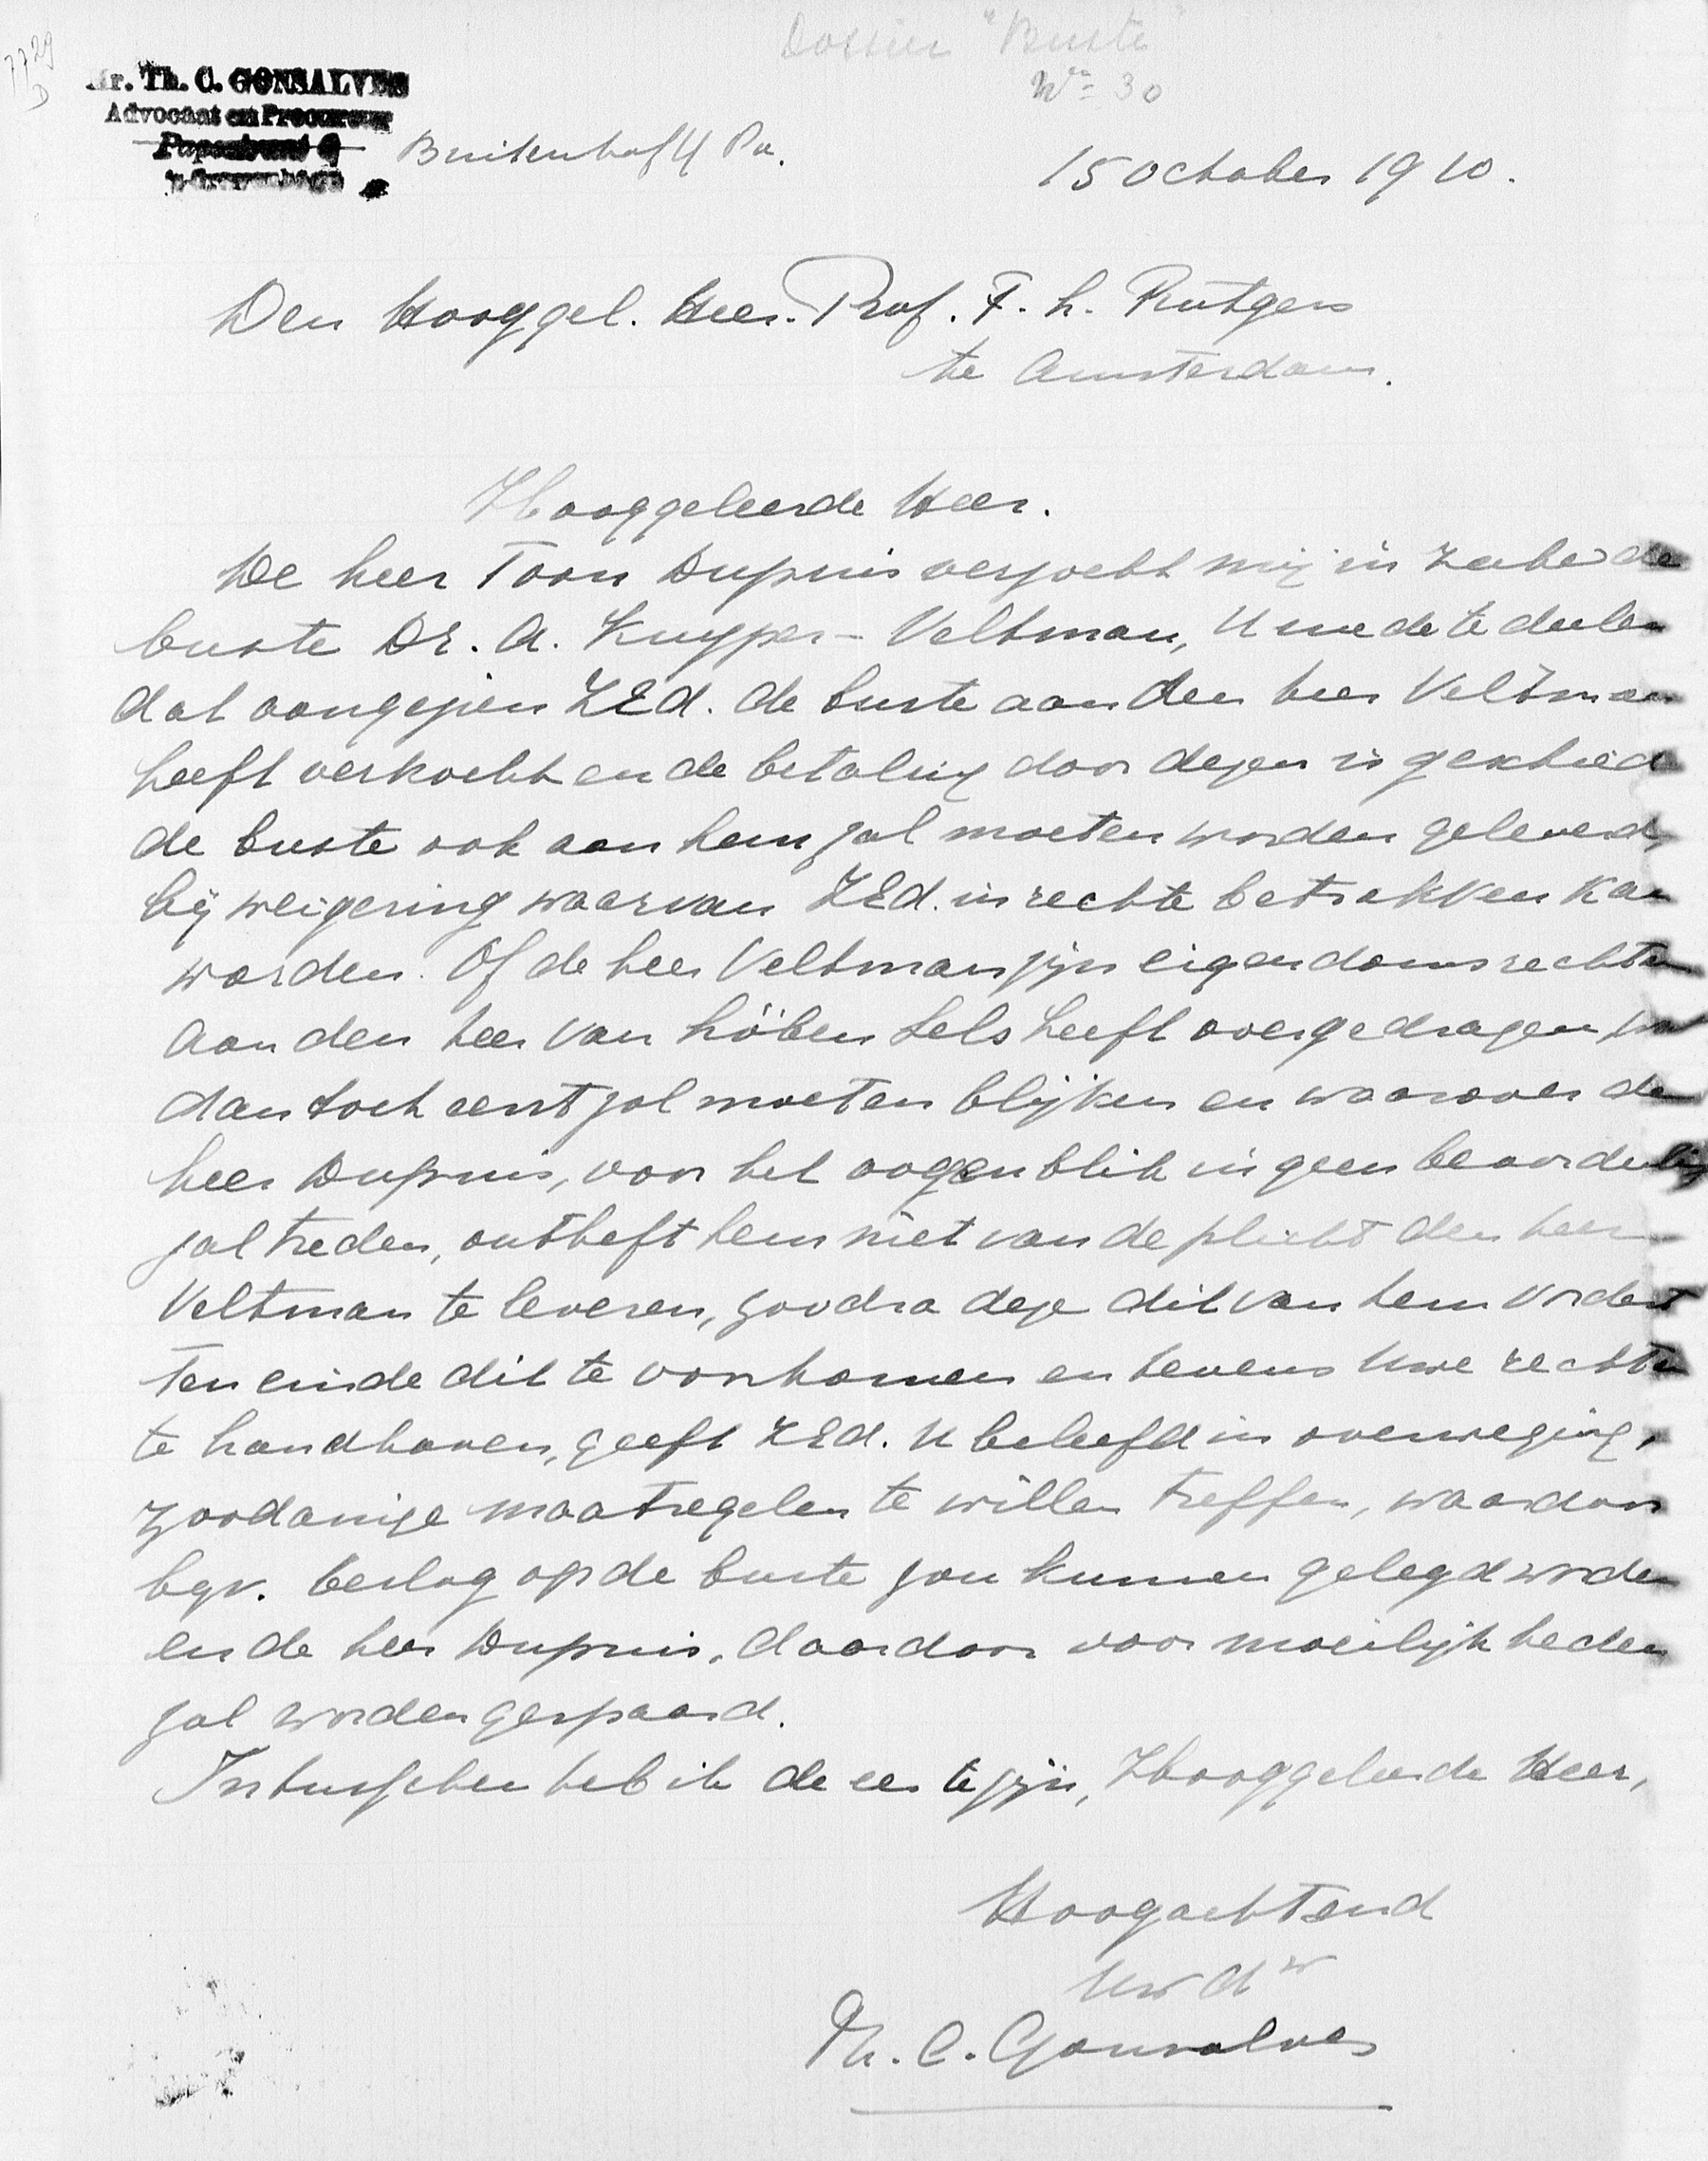 Dossier "Buste"
No 30
7729
D
Mr. Th. C. GONSALVES
Advocaat en Procureur
's-Gravenhage
Buitenhof 4 Pa.
15 October 1910.
Den Hooggel. Heer. Prof. F. L. Rutgers
te Amsterdam.
Hooggeleerde Heer.
De heer Toon Dupuis verzocht mij in zake de
buste Dr. A. Kuyper - Veltman, U mede te deelen
dat aangezien ZEd. de buste aan den heer Veltman
heeft verkocht en de betaling door dezen is geschied
de buste ook aan hem zal moeten worden geleverd,
bij weigering waarvan ZEd. in rechte betrokken kan
worden. Of de heer Veltman zijn eigendomsrechten
aan den heer Van Löben Sels heeft overgedragen,
dan toch eerst zal moeten blijken en waarover de
heer Dupuis, voor het oogenblik in geen beoordeling
zal treden, ontheft hem niet van de plicht den heer
Veltman te leveren, zoodra deze dit van hem vordert
Ten einde dit te voorkomen en tevens Uwe rechten
te handhaven, geeft ZEd. U beleefd in overweging,
zoodanige maatregelen te willen treffen, waardoor
bgv. beslag op de buste zou kunnen gelegd worden
en de heer Dupuis, daardoor voor moeilijkheden
zal worden gespaard.
Intusschen heb ik de eer te zijn, Hooggeleerde Heer,
Hoogachtend
Uw dw
Th. C. Gonsalves